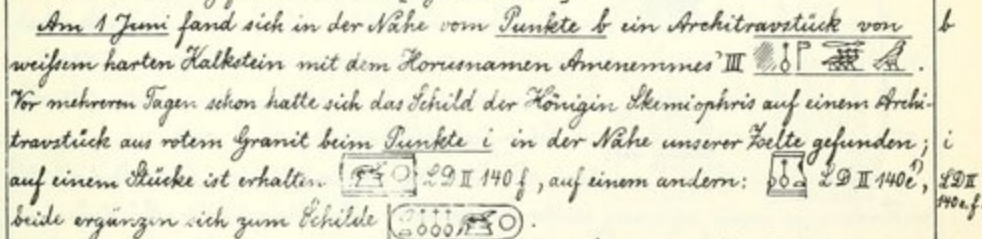 Am 1 Juni fand sich in der Nähe vom Punkte b ein Architravstück von b
weißem harten Kalkstein mit dem Horusnamen Amenemmes' III .
Vor mehreren Tagen schon hatte sich das Schild der Königin Skemiophris auf einem Archi-
travstück aus rotem Granit beim Punkte i in der Nähe unserer Zelte gefunden; i
auf einem Stücke ist erhalten LD II 140 f, auf einem andern: LD II 140 e¹⁾, LD II
beide ergänzen sich zum Schilde . 140 e. f.